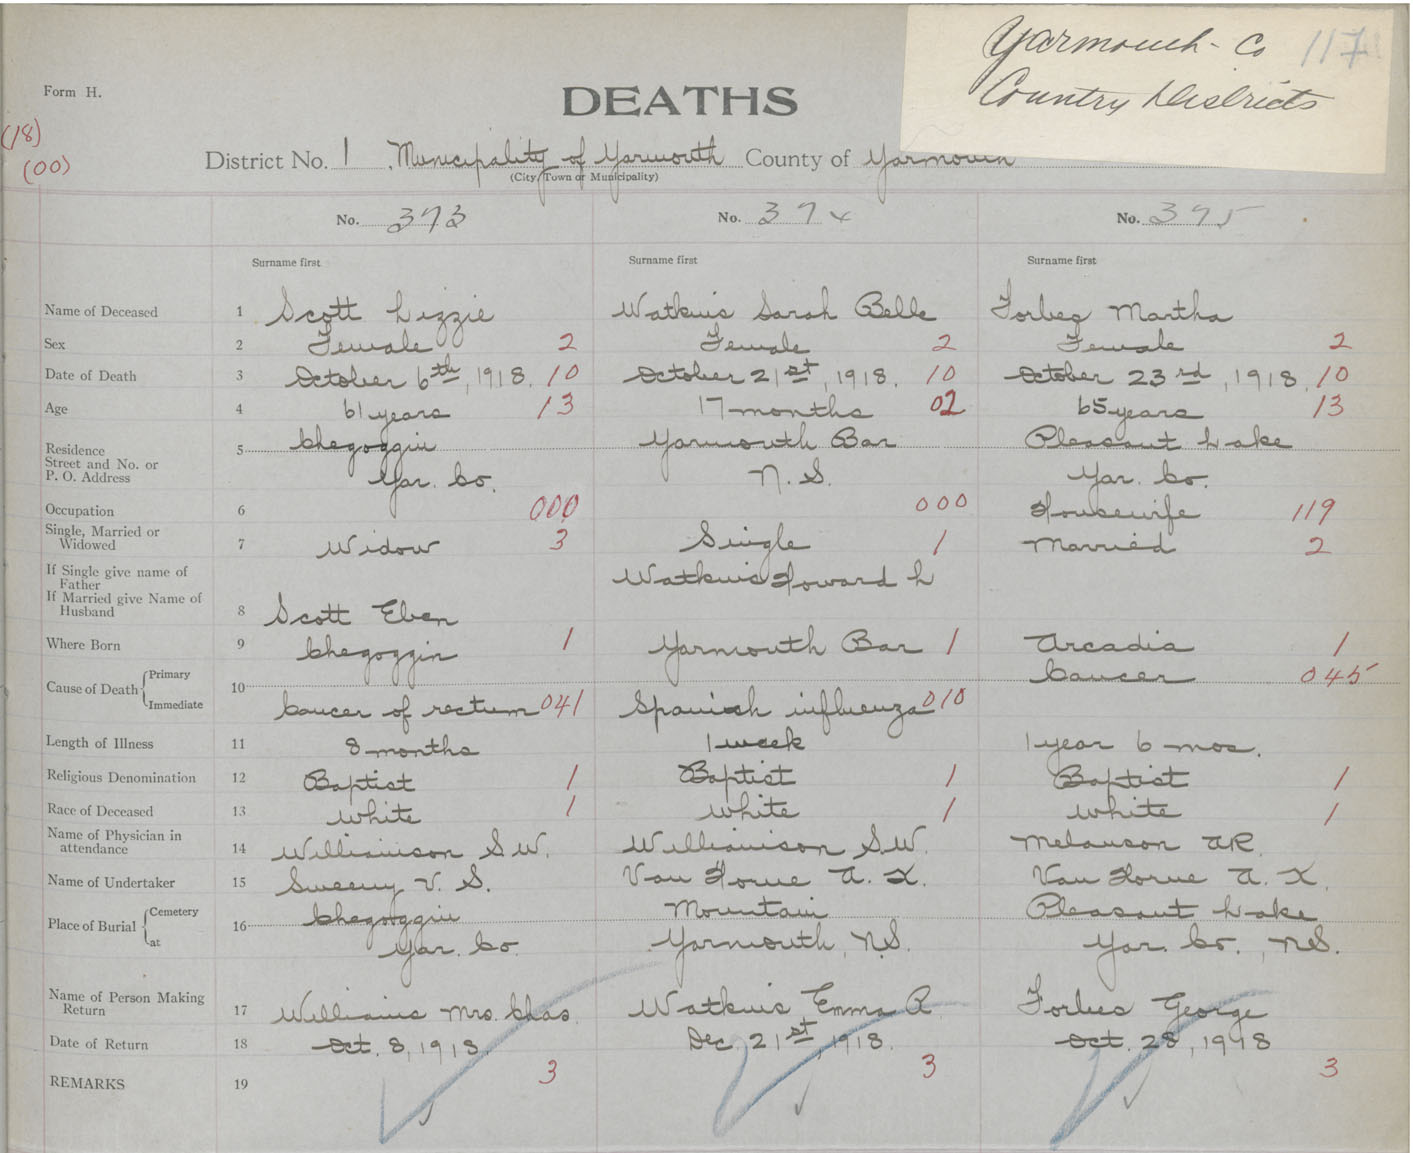 Yarmouth - Co 117
Country Districts
Form H.
DEATHS
(18)
(00)
District No. 1, Municipality of Yarmouth County of Yarmouth
(City, Town or Municipality)
No. 393 No. 394 No. 395
Surname first Surname first Surname first
Name of Deceased 1 Scott Lizzie Watkins Sarah Belle Forbes Martha
Sex 2 Female 2 Female 2 Female 2
Date of Death 3 October 6th, 1918. 10 October 21st, 1918. 10 October 23rd, 1918. 10
Age 4 61 years 13 17 months 02 65 years 13
Residence 5 Chegoggin Yarmouth Bar Pleasant Lake
Street and No. or
P. O. Address Yar. Co. N. S. Yar. Co.
Occupation 6 000 000 Housewife 119
Single, Married or
Widowed 7 Widow 3 Single 1 Married 2
If Single give name of
Father Watkins Howard L
If Married give Name of
Husband 8 Scott Eben
Where Born 9 Chegoggin 1 Yarmouth Bar 1 Arcadia 1
Cause of Death Primary 10 Cancer 045
Immediate Cancer of rectum 041 Spanish influenza 010
Length of Illness 11 8 months 1 week 1 year 6 mos.
Religious Denomination 12 Baptist 1 Baptist 1 Baptist 1
Race of Deceased 13 White 1 White 1 White 1
Name of Physician in
attendance 14 Williamson S.W. Williamson S.W. Melanson A.R.
Name of Undertaker 15 Sweeny V. S. Van Horne A. X. Van Horne A. X.
Place of Burial Cemetery 16 Chegoggin Mountain Pleasant Lake
at Yar. Co. Yarmouth, N.S. Yar. Co., N.S.
Name of Person Making
Return 17 Williams Mrs. Chas. Watkins Emma R. Forbes George
Date of Return 18 Oct. 8, 1918. Dec. 21st, 1918. Oct. 28, 1918
REMARKS 19 3 3 3